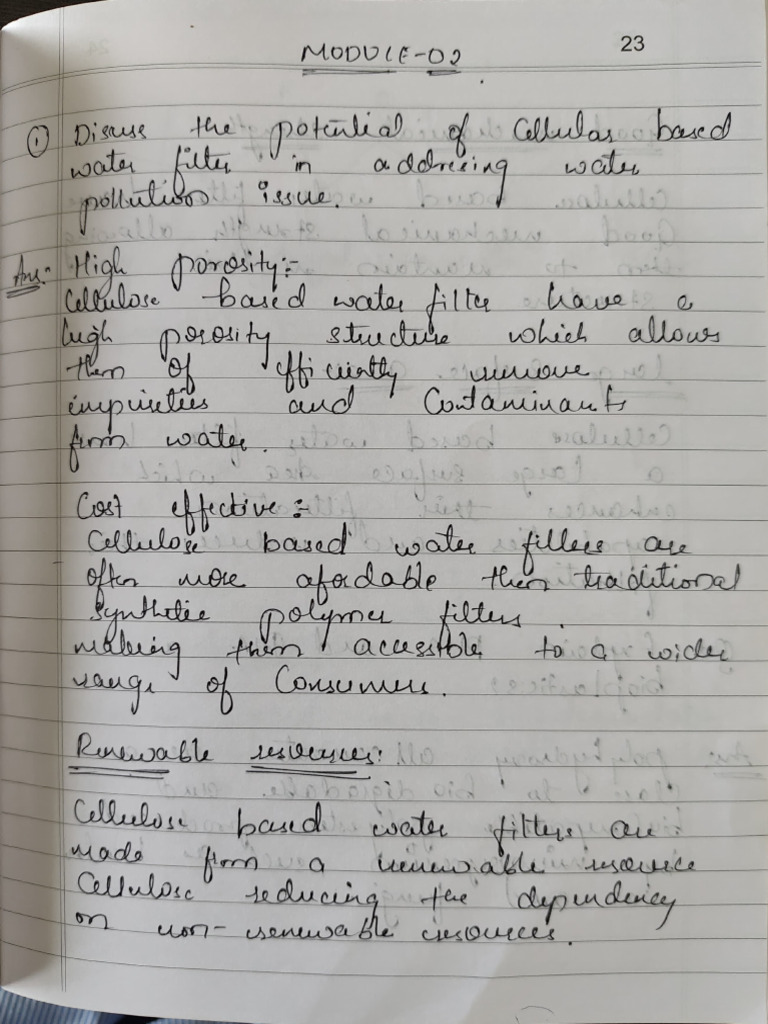 23
MODULE-02
① Discuss the potential of Cellular based
water filter in addresing water
pollution issue.
Ans:- High porosity:-
Cellulose based water filter have a
high porosity structure which allows
them of efficiently remove
impurities and Contaminants
from water.
Cost effective:-
Cellulose based water fillers are
often more afordable then traditional
synthetic polymer filters.
making them accessible to a wider
range of Consumers.
Renewable resources:
Cellulose based water filters are
made from a renewable resource
Cellulose reducing the dependency
on non-renewable resources.